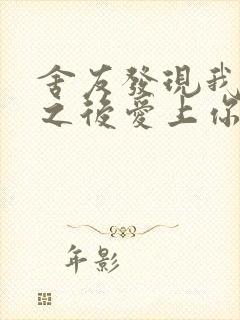 舍友發現我
之後愛上你
年影